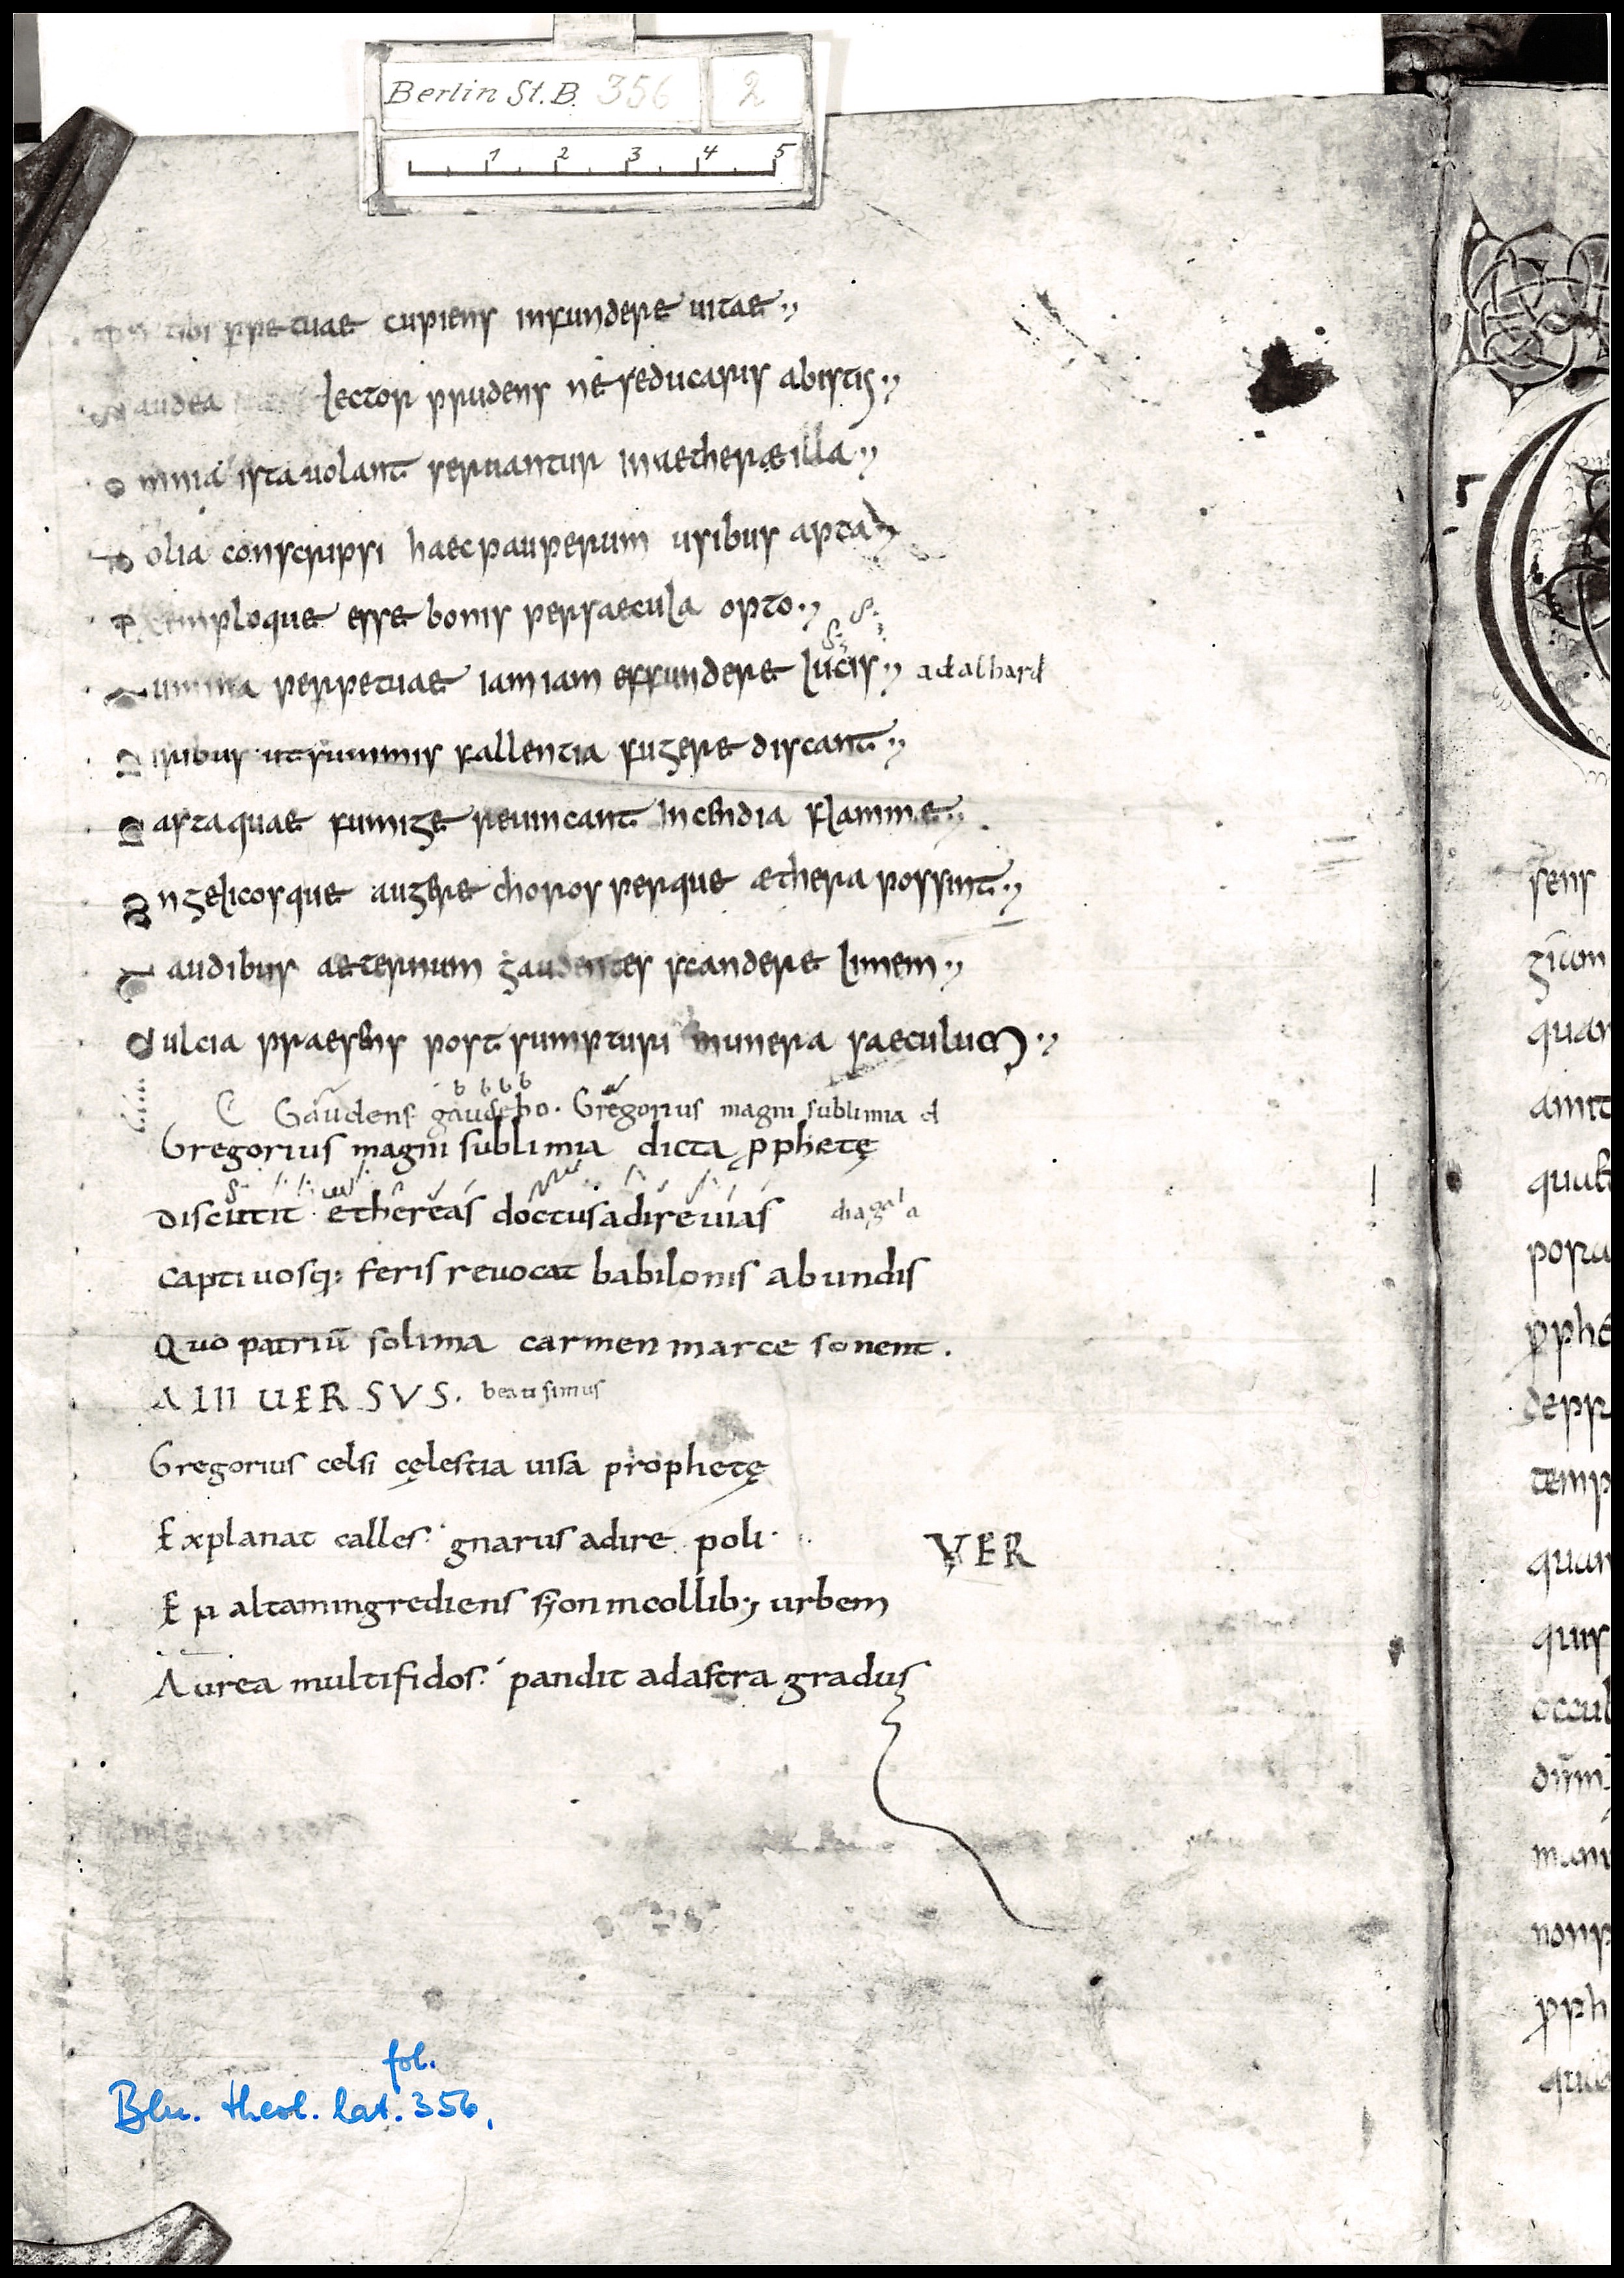 Berlin St. B. 356 2
1 2 3 4 5
tibi ꝑpetuae cupiens infundere vitae
audea lector prudens ne seducaris ab istis
omnia ista volant servantur in aetherae illa
folia conscripsi haec pauperum usibus apta
exemploque esse bonis per saecula opto
lumina perpetuae iam iam effundere lucis adalhard
iribus ut summis fallentia fugere discant
castaque fumige revincant incendia flammae
angelicosque augere choros perque aethera possint
laudibus aeternum gaudentes scandere limem
dulcia praesens post sumpturi munera saeculum
b b b b
C Gaudens gaudebo. Gregorius magni sublimia d
Gregorius magni sublimia dicta ꝓphetę
discutit ethereas doctus adire vias diagala
captivosq: feris revocat babilonis ab undis
Quo patriū solima carmen marce sonent.
A III UERSVS. beatisimus
Gregorius celsi cęlestia visa prophetę
Explanat calles gnarus adire poli
VER
En altam ingrediens syon in collib; urbem
Aurea multifidos pandit ad astra gradus
fol.
Bln. theol. lat. 356,
sens
quar
amit
pphe
temp
quis
occul
manu